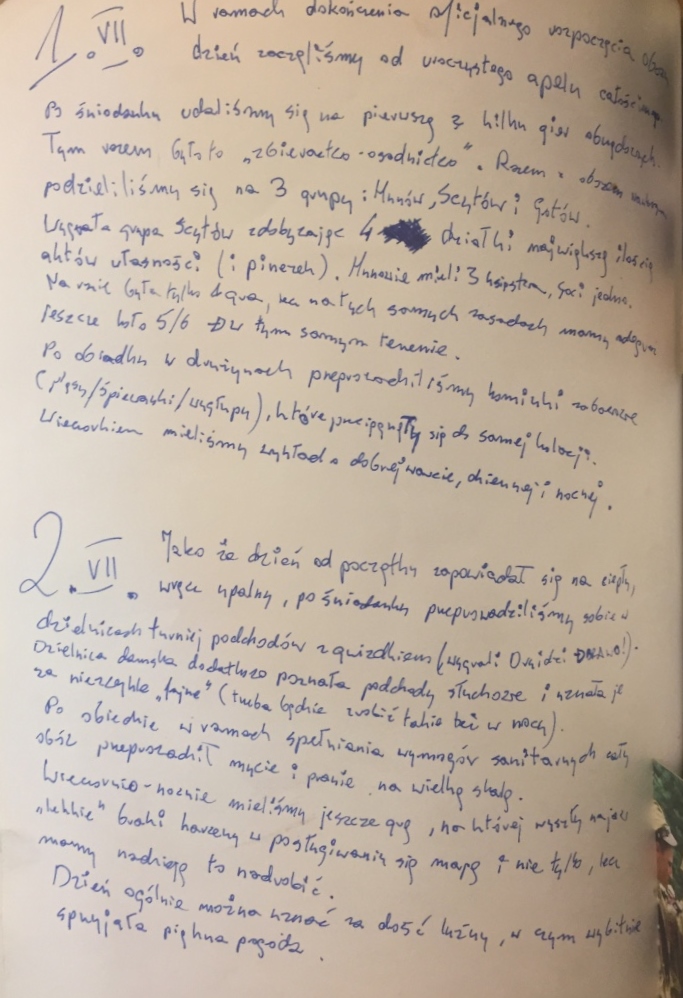 1. VII. W ramach dokończenia oficjalnego rozpoczęcia obozu
dzień zaczęliśmy od uroczystego apelu
Po śniadanku udaliśmy się na pierwszą z kilku gier obozowych.
Tym razem było to „zbieractwo-osadnictwo”. Razem z obozem
podzieliliśmy się na 3 grupy: Hunów, Scytów i Gotów.
Wygrała grupa Scytów zdobywając 4 działki największą ilością
aktów własności (i pinezek). Hunowie mieli 3 Goci jedną.
Na razie była tylko na tych samych zasadach mamy
jeszcze koło 5/6 w tym samym terenie.
Po obiadku w drużynach przeprowadziliśmy kominki zaborowe
(pląsy/śpiewanki/wygłupy), które przeciągnęły się do samej kolacji.
Wieczorkiem mieliśmy wykład o dobrej warcie, dziennej i nocnej.
2. VII. Jako że dzień od początku zapowiadał się na ciepły,
wręcz upalny, po śniadanku przeprowadziliśmy sobie w
dzielnicach turniej podchodów z gwizdkiem (wygrali Druidzi BRAWO!).
Dzielnica damska dodatkowo poznała podchody słuchowe i uznała je
za niezwykle „fajne” (trzeba będzie zrobić takie też w nocy).
Po obiedzie w ramach spełniania wymogów sanitarnych cały
obóz przeprowadził mycie i pranie na wielką skalę.
Wieczorno-nocnie mieliśmy jeszcze grę, na której wyszły na jaw
„lekkie” braki harcerzy w posługiwaniu się mapą i nie tylko, lecz
mamy nadzieję to nadrobić.
Dzień ogólnie można uznać za dość luźny, w czym wybitnie
sprzyjała piękna pogoda.